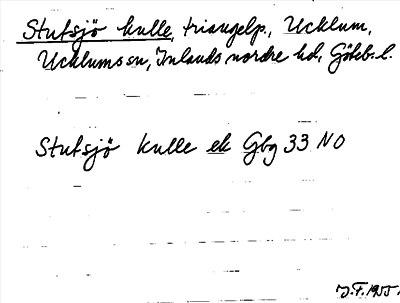 Stutsjö kulle, triangelp., Ucklum,
Ucklums sn, Inlands nordre hd, Göteb. l.
Stutsjö kulle ek Gbg 33 NO
J.F. 1955.